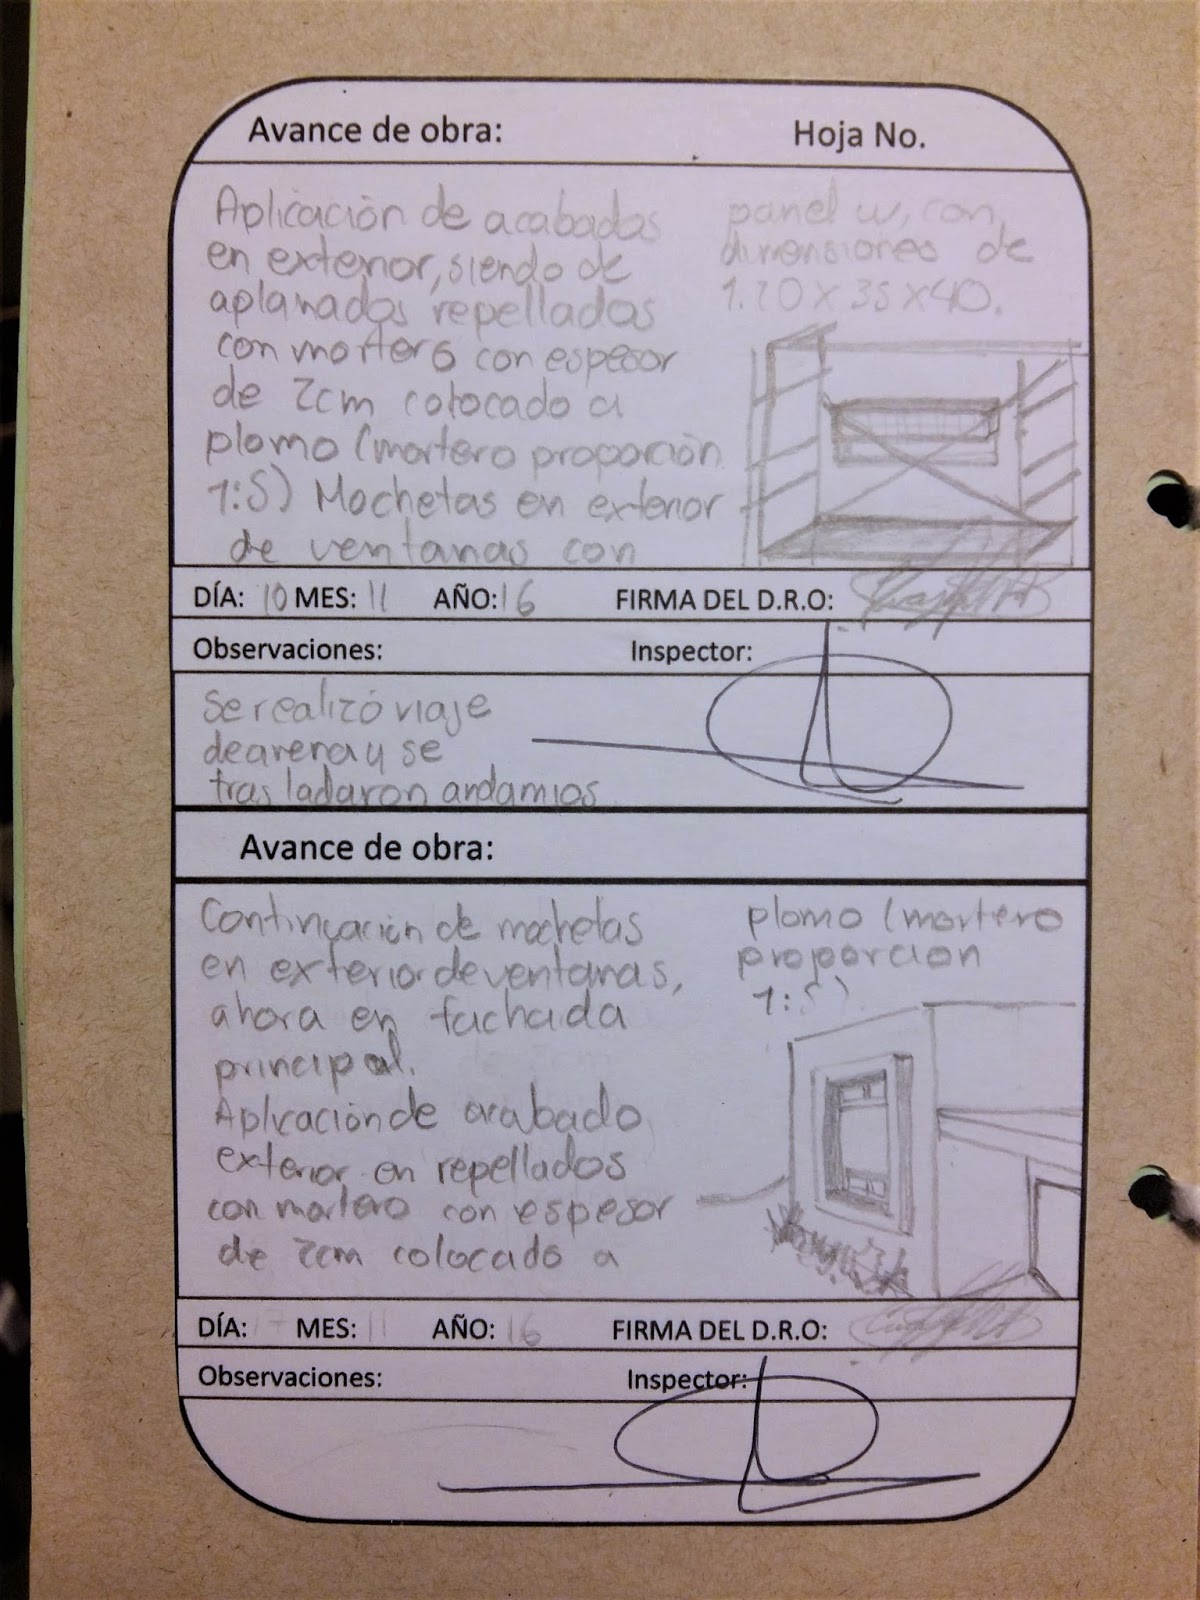 Avance de obra: Hoja No.
Aplicación de acabados
en exterior, siendo de
aplanados repellados
con mortero con espesor
de 2cm colocado a
plomo (mortero proporción
1:5) Mochetas en exterior
de ventanas con
panel w, con
dimensiones de
1.20 x 35 x 40.
DÍA: 10 MES: 11 AÑO: 16 FIRMA DEL D.R.O:
Observaciones: Inspector:
Se realizó viaje
de arena y se
trasladaron andamios
Avance de obra:
Continuación de mochetas
en exterior de ventanas,
ahora en fachada
principal.
Aplicación de acabado
exterior en repellados
con mortero con espesor
de 2cm colocado a
plomo (mortero
proporcion
1:5)
DÍA: MES: 11 AÑO: 16 FIRMA DEL D.R.O:
Observaciones: Inspector: